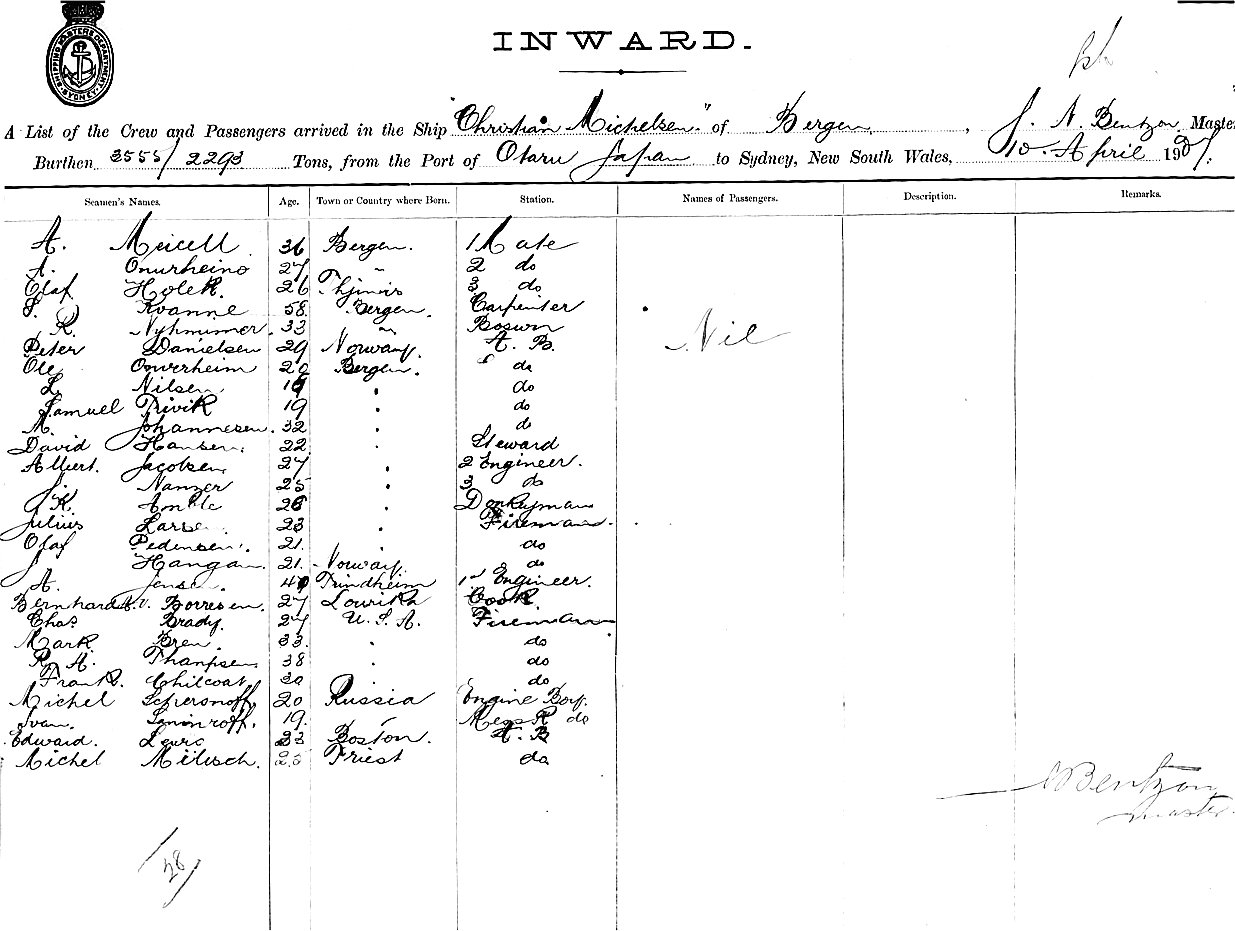 SHIPPING MASTERS DEPARTMENT SYDNEY
INWARD.
A List of the Crew and Passengers arrived in the Ship "Christian Michelsen" of Bergen, J. N. Bentzon Master
Burthen 3555/2293 Tons, from the Port of Otaru Japan to Sydney, New South Wales, 10 April 1907.
Seamen's Names. Age. Town or Country where Born. Station. Names of Passengers. Description. Remarks.
A. Meicell 36 Bergen. 1 Mate
A. Onurheino 27 " 2 do
Olaf Holek. 26 3 do
S. Kvanne 58 Bergen. Carpenter
R. Nyhmimer. 33 " Boswn
Nil
Peter Danielsen 29 Norway. A. B.
Ole Onverheim 20 Bergen. do
L. Nilsen do
Samuel Trivik 19 do
M. Johannesen. 32 do
David Hansen. 22 Steward
Albert. Jacobsen 27 2 Engineer.
J. Nanzer 25 3 do
K. Donkeyman
Julius Larsen 23 Fireman.
Olaf Pedensen. 21. do
J. Hangan. 21. Norway. do
A. Jensen. Trindheim 1st Engineer.
Bernhard A.V. Borresen. 27 Lourika Cook.
Chas Brady. 27 U.S.A. Fireman
Mark Bren 33. do
R. A. Thanpsen 38 do
Frank. Chilcoat. 30 do
Michel Schersnoff. 20 Russia Engine Boy.
Ivan. Seninroff. 19. Mess R do
Edward. Lewis 23 Boston. A. B
Michel Milisch. 25 Triest do
J Bentzon
Master.
28